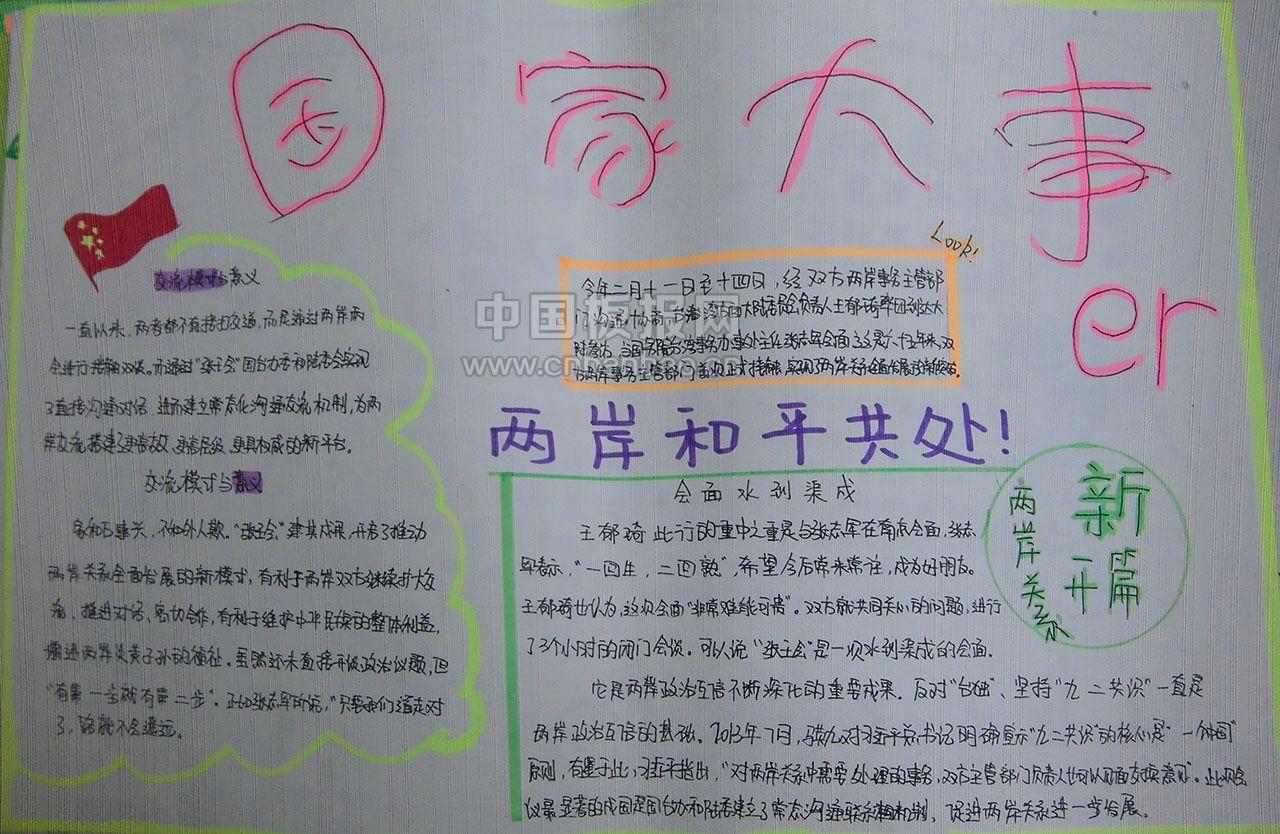 国家大事er
Look!
今年二月十一日至十四日，经双方两岸事务主管部
门沟通协商，台湾方面大陆委员会负责人王郁琦率团到达大
陆参访，当国务院台湾事务办事处主任张志军会面
两岸事务主管部门首次正式接触，实现两岸关系全面发展
中国板报网
www.cnbanbao.com
交流模式与意义
一直以来，两者都不直接打交道，而是通过两岸两
会进行接触对谈。而通过"张王会"国台办和陆委会实现
了直接沟通对话，进而建立常态化沟通交流机制，为两
岸交流搭建了更高效、更高层级、更具权威的新平台。
交流模式与意义
家和万事兴，不和外人欺。"张王会"建共成果，开启了推动
两岸关系全面发展的新模式，有利于两岸双方继续扩大交
流、推进对话、密切合作，有利于维护中华民族的整体利益，
增进两岸炎黄子孙的福祉。虽然还未直接开谈政治议题，但
"有第一步就有第二步"。正如张志军所说，"只要我们道走对
了，路就不会遥远。
两岸和平共处！
会面水到渠成
王郁琦此行的重中之重是与张志军在南京会面，张志
军表示，"一回生，二回熟"，希望今后常来常往，成为好朋友。
王郁琦也认为，这次会面"非常难能可贵"。双方就共同关心的问题，进行
了3个小时的闭门会谈。可以说"张王会"是一次水到渠成的会面。
它是两岸政治互信不断深化的重要成果。反对"台独"、坚持"九二共识"一直是
两岸政治互信的基础。2013年7月，马英九对习近平总书记明确显示"九二共识"的核心是"一个中国"
原则，有鉴于此，习近平指出，"对两岸关系中需要处理的事务，双方主管部门负责人也可以见面交换意见"。此次会
议最显著的成国是国台办和陆委建立了常态沟通联系机制，促进两岸关系进一步发展。
两岸关系
新开篇